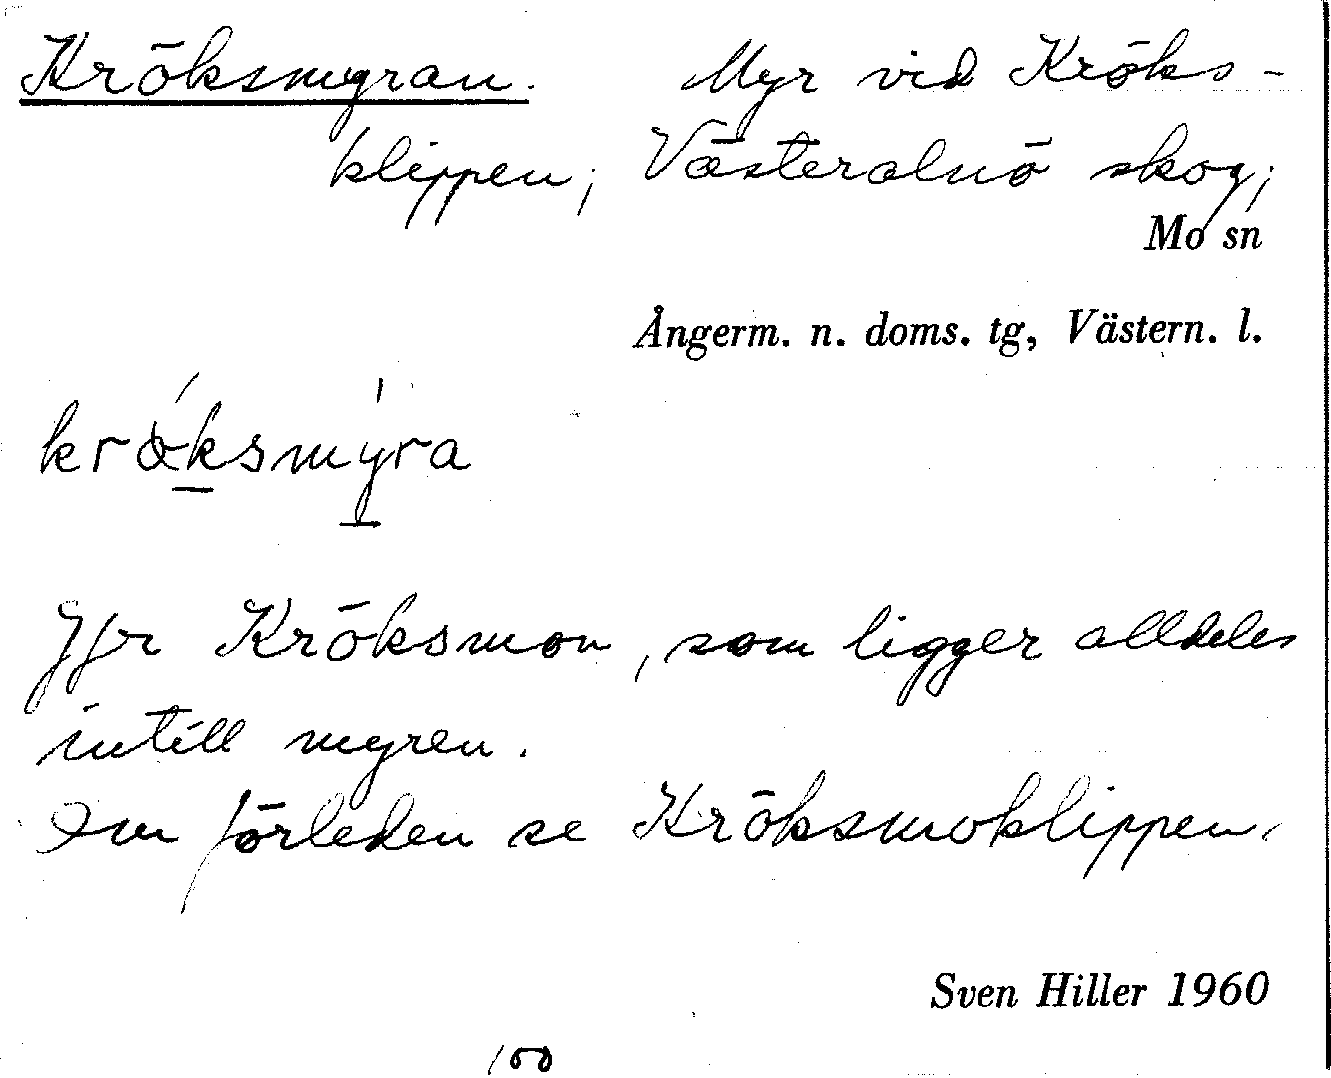 Kröksmyran. Myr vid Kröks-
klippen; Västeralnö skog;
Mo sn
Ångerm. n. doms. tg, Västern. l.
krǿksmýra
Jfr Kröksmon, som ligger alldeles
intill myren.
Om förleden se Kröksmoklippen.
Sven Hiller 1960
100